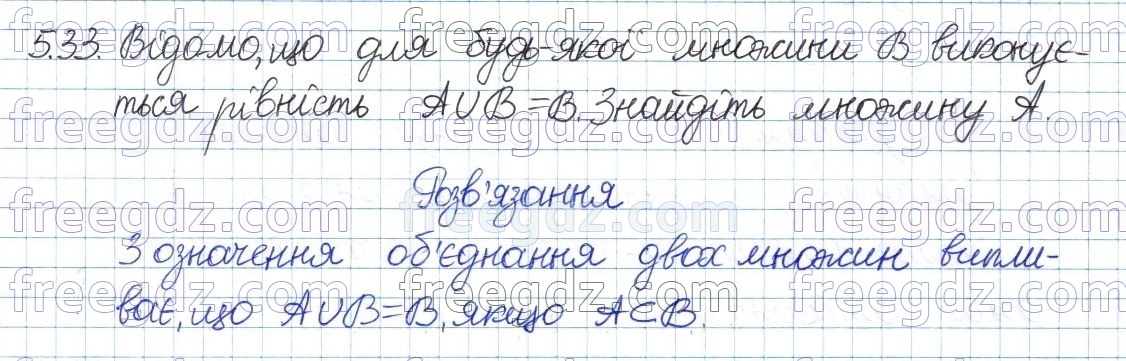 5.33. Відомо, що для будь-якої множини B виконує-
ться рівність A∪B=B. Знайдіть множину A.
Розв'язання
З означення об'єднання двох множин випли-
ває, що A∪B=B, якщо A⊂B.
freegdz.com freegdz.com freegdz.com
freegdz.com freegdz.com freegdz.com
freegdz.com freegdz.com freegdz.com
freegdz.com freegdz.com freegdz.com
freegdz.com freegdz.com freegdz.com
freegdz.com freegdz.com freegdz.com
freegdz.com freegdz.com freegdz.com